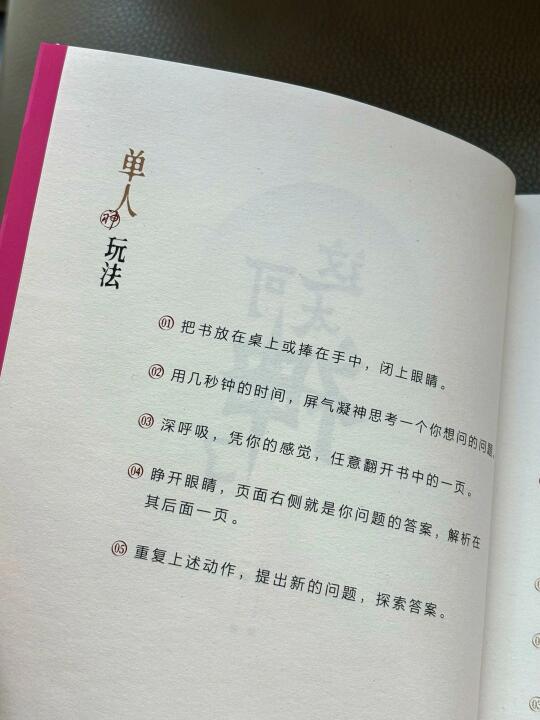 单人
神
玩法
01 把书放在桌上或捧在手中，闭上眼睛。
02 用几秒钟的时间，屏气凝神思考一个你想问的问题，
03 深呼吸，凭你的感觉，任意翻开书中的一页。
04 睁开眼睛，页面右侧就是你问题的答案，解析在
其后面一页。
05 重复上述动作，提出新的问题，探索答案。